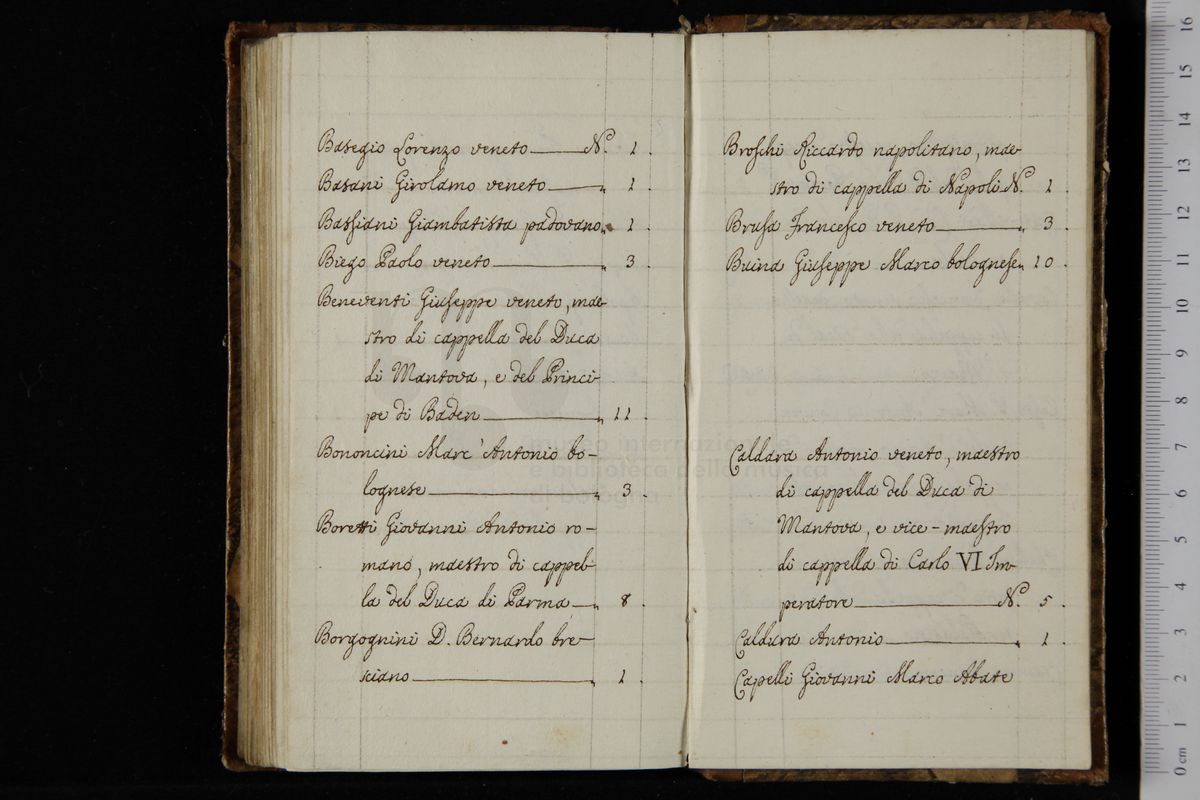 Basegio Lorenzo veneto N. 1.
Basani Girolamo veneto „ 1.
Bassiani Giambatista padovano „ 1.
Biego Paolo veneto „ 3.
Beneventi Giuseppe veneto, mae-
stro di cappella del Duca
di Mantova, e del Princi-
pe di Baden „ 11.
Bononcini Marc'Antonio bo-
lognese „ 3.
Boretti Giovanni Antonio ro-
mano, maestro di cappel-
la del Duca di Parma „ 8.
Borgognini D. Bernardo bre-
sciano „ 1.
Broschi Riccardo napolitano, mae-
stro di cappella di Napoli N. 1.
Brusa Francesco veneto „ 3.
Buina Giuseppe Marco bolognese „ 10.
Caldara Antonio veneto, maestro
di cappella del Duca di
Mantova, e vice-maestro
di cappella di Carlo VI Im-
peratore N. 5.
Caldura Antonio „ 1.
Capelli Giovanni Marco Abate
museo internazionale
e biblioteca della musica
di bologna
0 cm 1 2 3 4 5 6 7 8 9 10 11 12 13 14 15 16